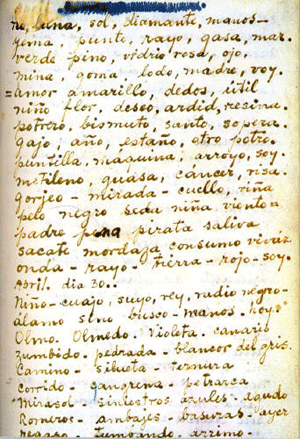 no, luna, sol, diamante, manos-
yema, punto, rayo, gasa, mar.
verde pino, vidrio rosa, ojo,
mina, goma, lodo, madre, voy.
=amor amarillo, dedos, útil
niño flor, deseo, ardid, resina.
potrero, bismuto, santo, sopera.
gajo, año, estaño, otro potro.
puntilla, maquina, arroyo, soy.
metileno, guasa, cáncer, risa.
gorjeo - mirada - cuello, viña
pelo negro seda niña viento =
padre pena pirata saliva
sacate mordaja consumo vivaz
onda - rayo - tierra - rojo - soy.
Abril. dia 30.
Niño - cuajo, suyo, rey, radio negro -
álamo sino busco - manos. hoys
Olmo. Olmedo. Violeta. canario
zumbido - pedrada - blancor del gris.
Camino - silueta - ternura
corrido - gangrena - petrarca
Mirasol - siniestros azules - agudo
Romeros - ambajes - basuras - ayer
regazo - tumbando arrimo -